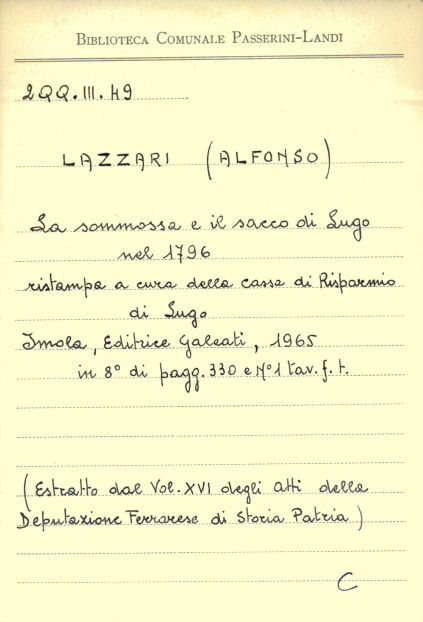 BIBLIOTECA COMUNALE PASSERINI-LANDI
2QQ.III.49
LAZZARI (ALFONSO)
La sommossa e il sacco di Lugo
nel 1796
ristampa a cura della cassa di Risparmio
di Lugo
Imola, Editrice Galeati, 1965
in 8° di pagg. 330 e N° 1 tav. f. t.
(Estratto dal Vol. XVI degli Atti della
Deputazione Ferrarese di Storia Patria)
C